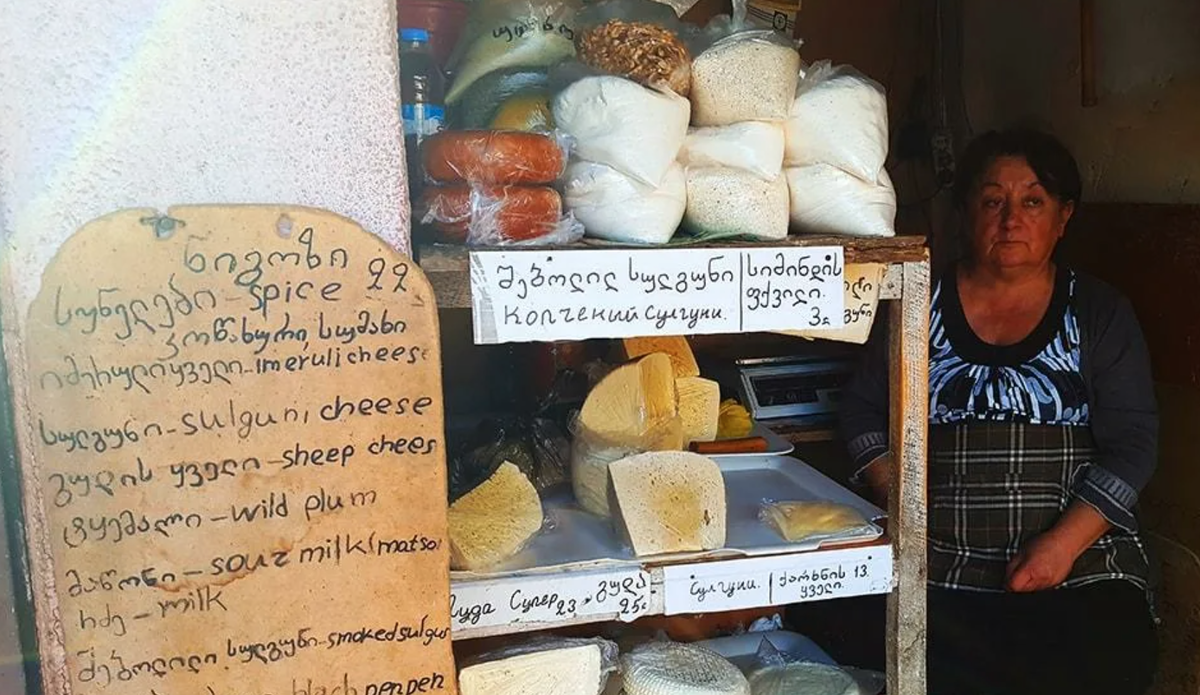 ნიგოზი 22
სუნელები - spice
კოწახური, სუმახი
იმერული ყველი - imeruli cheese
სულგუნი - sulguni cheese
გუდის ყველი - sheep chees
ტყემალი - wild plum
მაწონი - sour milk (matso
რძე - milk
შებოლილი სულგუნი - smoked sulgu
black pepper
შებოლილ სულგუნი
Копчений Сулгуни.
სიმინდის
ფქვილი.
3ლ
Гуда Супер 23, გუდა
25ლ
Сулгуни.
ქარხნის 13.
ყველი.